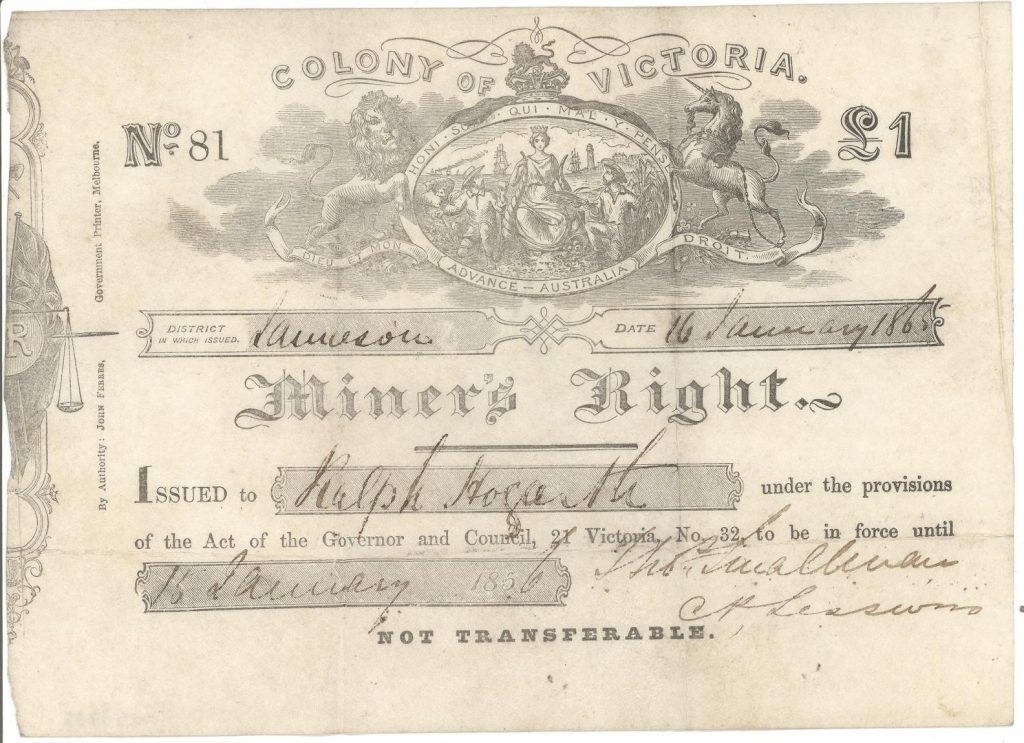 COLONY OF VICTORIA.
No. 81
£1
HONI · SOIT · QUI · MAL · Y · PENSE
DIEU ET MON DROIT.
ADVANCE — AUSTRALIA
DISTRICT IN WHICH ISSUED. Jamieson
DATE 16 January 1865
Miner's Right.
ISSUED to Ralph Hogarth under the provisions
of the Act of the Governor and Council, 21 Victoria, No. 32, to be in force until
15 January 1866
Thos Smallman
NOT TRANSFERABLE.
By Authority: JOHN FERRES, Government Printer, Melbourne.